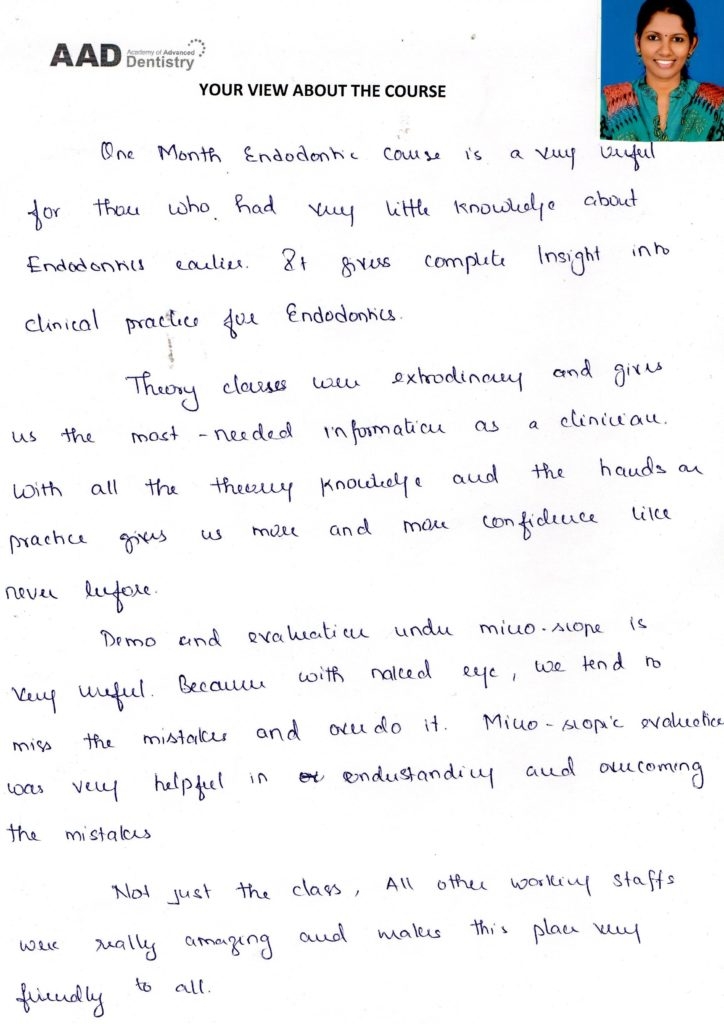 AAD Academy of Advanced Dentistry
YOUR VIEW ABOUT THE COURSE
One Month Endodontic course is a very useful
for those who had very little knowledge about
Endodontics earlier. It gives complete Insight into
clinical practice for Endodontics.
Theory classes were extrodinary and gives
us the most-needed information as a clinician.
With all the theory knowledge and the hands on
practice gives us more and more confidence like
never before.
Demo and evaluation under micro-scope is
very useful. Because with naked eye, we tend to
miss the mistakes and over do it. Micro-scopic evaluation
was very helpful in endustanding and overcoming
the mistakes
Not just the class, All other working staffs
were really amazing and makes this place very
friendly to all.